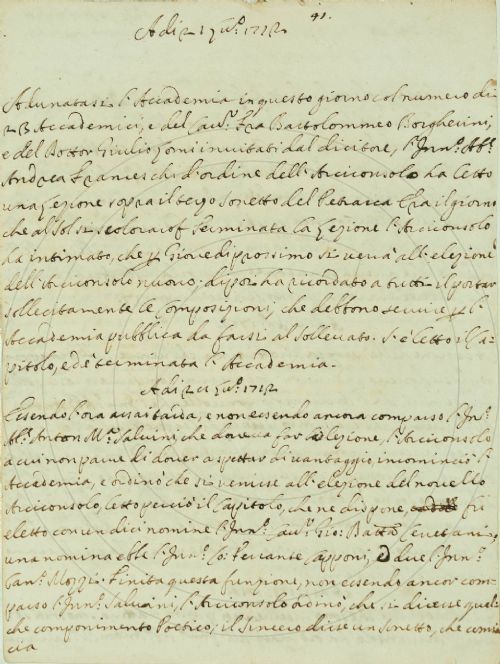 41.
Adi 21 Giug.º 1712
Adunatasi l'Accademia in questo giorno col numero di
23 Accademici, e del Cav.re Fra Bartolommeo Borgherini,
e del Dottor Giulio invitati dal dicitore, l'Inn.º Ab.e
Andrea Franceschi d'ordine dell'Arciconsolo ha letto
una Lezione sopra il terzo Sonetto del Petrarca Era il giorno
che al Sol si scoloraro. Terminata la Lezione l'Arciconsolo
ha intimato, che p Giovedi prossimo si verrà all'elezione
dell'Arciconsolo nuovo; dipoi ha ricordato a tutti il portar
sollecitamente le Composizioni, che debbono servire p l'
Accademia pubblica da farsi al Sollevato. S'è letto il Ca-
pitolo, ed è terminata l'Accademia.
1712
Essendo l'ora assai tarda, e non essendo ancora comparso l'In.º
Ab.e Anton M.a Salvini, che doveva far la lezione, l'Arciconsolo
a cui non parve di dover aspettar di vantaggio, incominciò l'
Accademia, e ordinò che si venisse all'elezione del novello
Arciconsolo, letto perciò il Capitolo, che ne dispone, fù
eletto con undici nomine l'Inn.º Cav.re Gio: Batta
una nomina ebbe l'Inn.º Co: Ferrante Capponi, e due l'Inn.º
Can.co Finita questa funzione, non essendo ancor com-
parso l'Inn.º Salvini, l'Arciconsolo che si dicesse qual-
che componimento Poetico; il disse un Sonetto, che comin-
cia